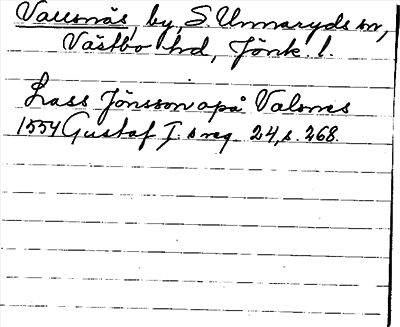 Vallsnäs, by, S. Unnaryds sn,
Västbo hd, Jönk. l.
Lass Jönsson apå Valsnes
1554 Gustaf I:s reg. 24, s. 268.